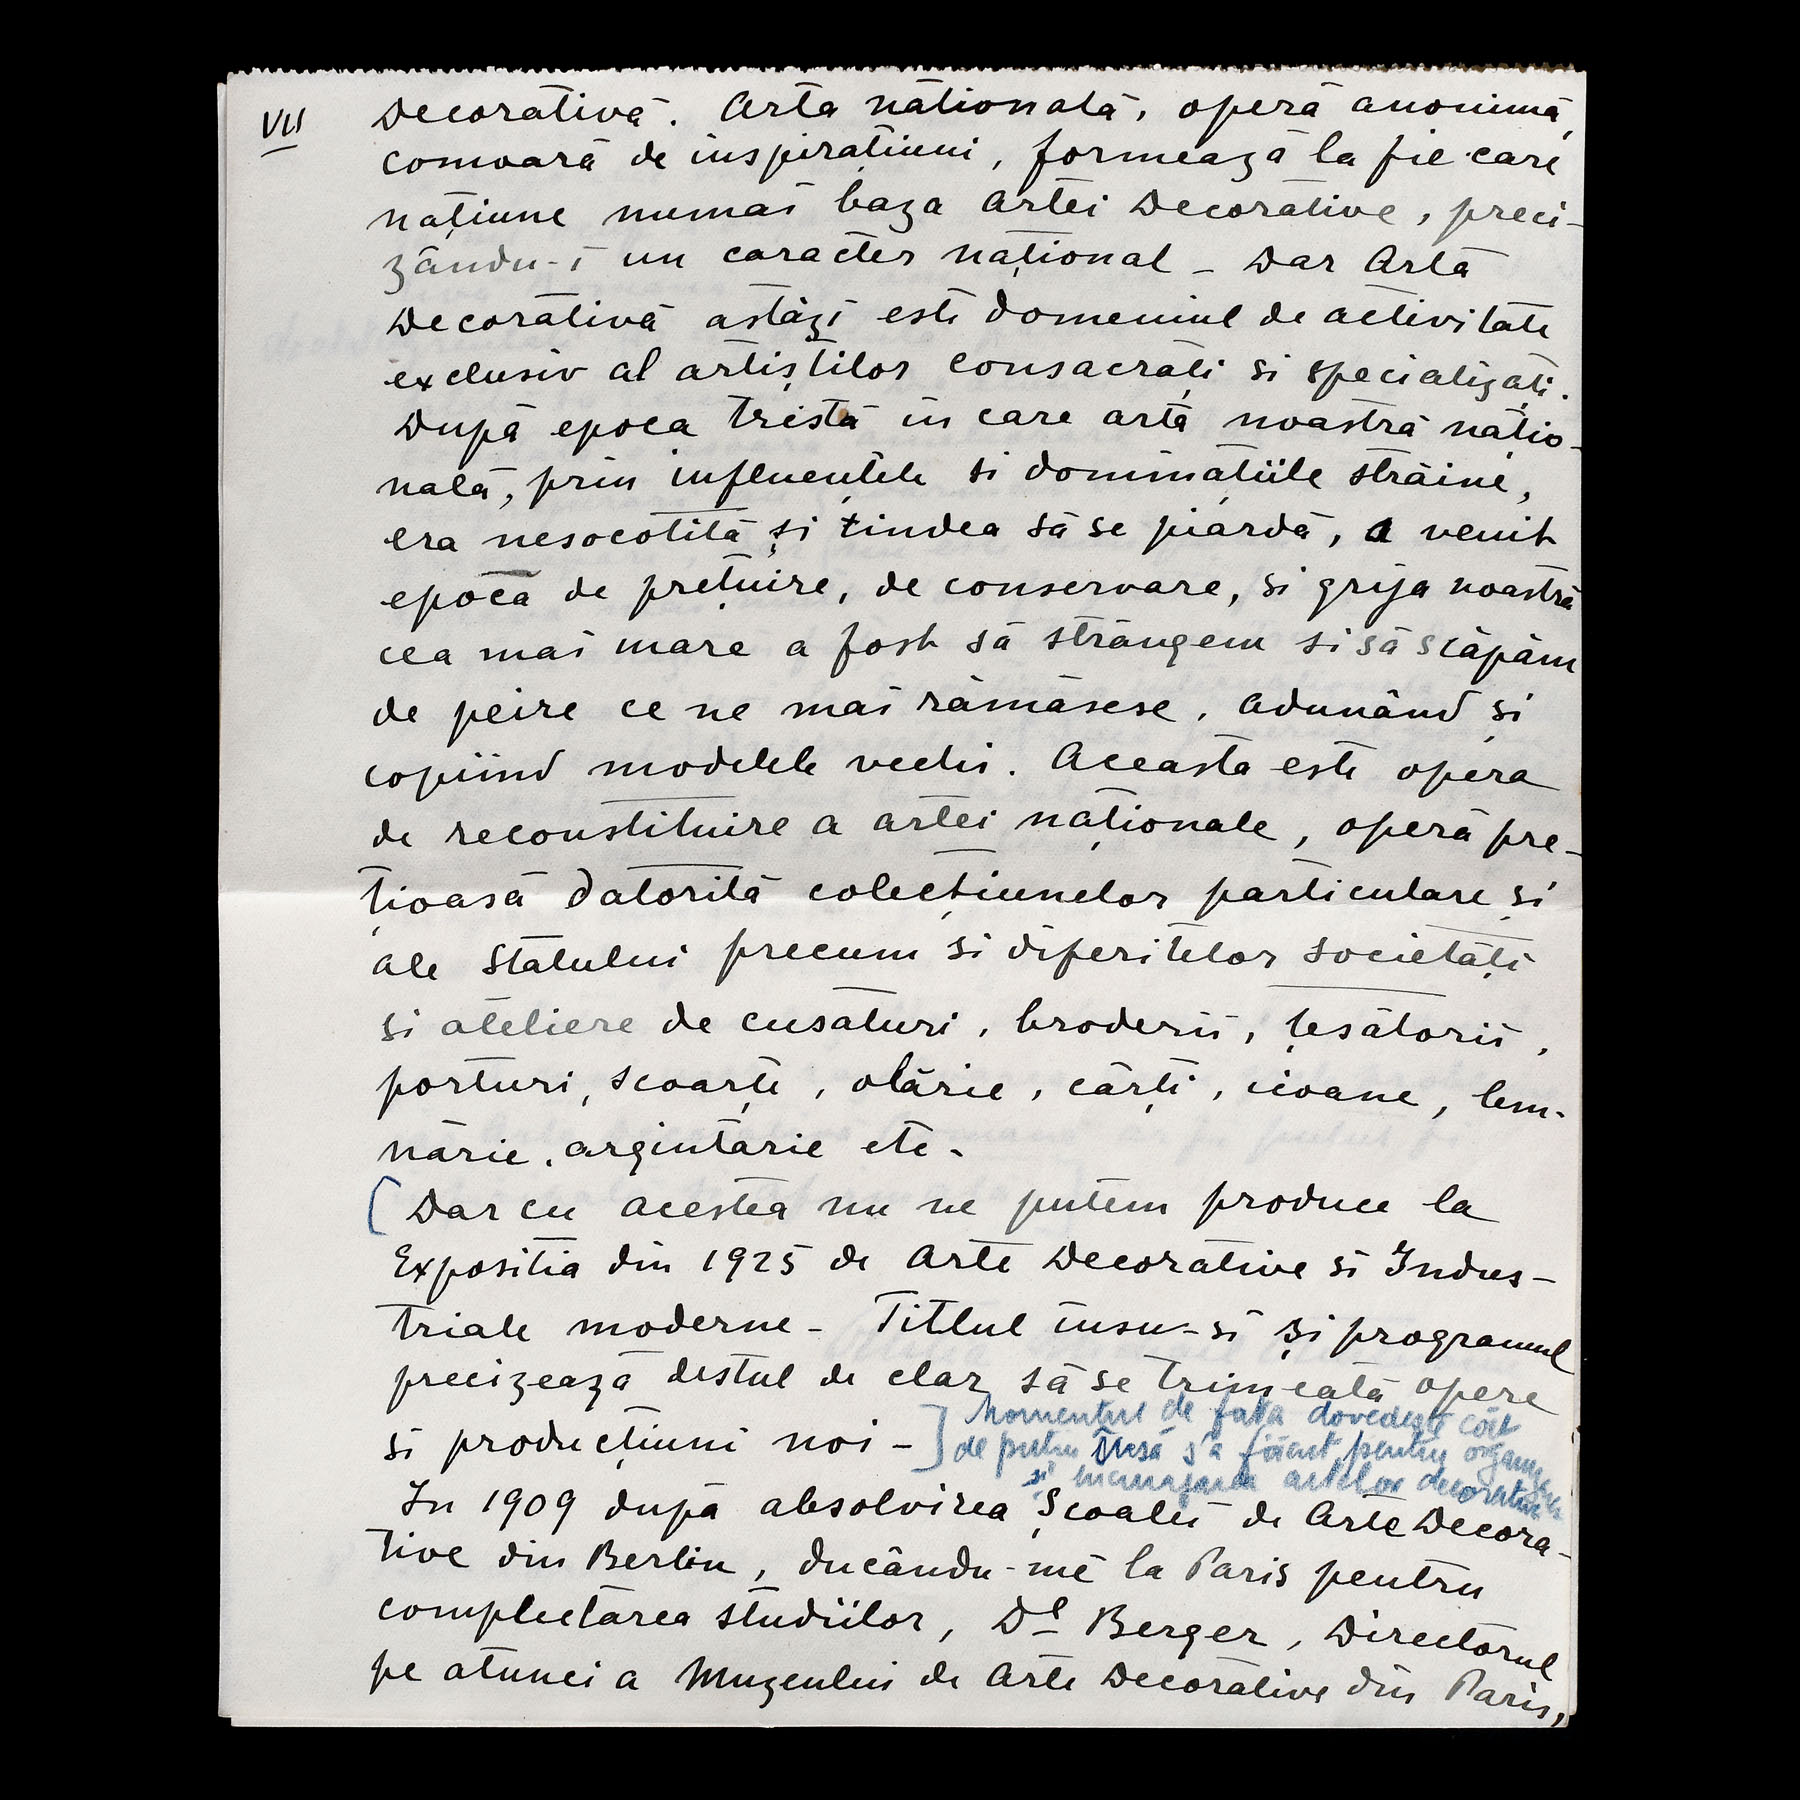 VII
Decorativă. Arta națională, operă anonimă,
comoară de inspirațiuni, formează la fie care
națiune numai baza Artei Decorative, preci-
zându-i un caracter național - Dar Arta
Decorativă astăzi este domeniul de activitate
exclusiv al artiștilor consacrați si specializați.
După epoca tristă in care arta noastră națio-
nală, prin influențele si dominațiile străine,
era nesocotită și tindea să se piardă, a venit
epoca de prețuire, de conservare, si grija noastră
cea mai mare a fost să strângem si să scăpăm
de peire ce ne mai rămăsese, adunând și
copiind modelele vechi. Aceasta este opera
de reconstituire a artei naționale, operă pre-
țioasă datorită colecțiunelor particulare și
ale Statului precum si diferitelor societăți
și ateliere de cusaturi, broderii, țesătorii,
porturi, scoarțe, olărie, cărți, icoane, lem-
nărie, argintărie etc.
(Dar cu acestea nu ne putem produce la
Expositia din 1925 de Arte Decorative si Indus-
triale moderne - Titlul insu-si și programul
precizează destul de clar să se trimeată opere
si producțiuni noi -]
Momentul de fata dovedește cât
de putin insă s'a făcut pentru
și incurajarea artelor decorative
In 1909 după absolvirea Școalei de Arte Decora-
tive din Berlin, ducându-mě la Paris pentru
complectarea studiilor, Dl Berger, Directorul
pe atunci a Muzeului de Arte Decorative din Paris,